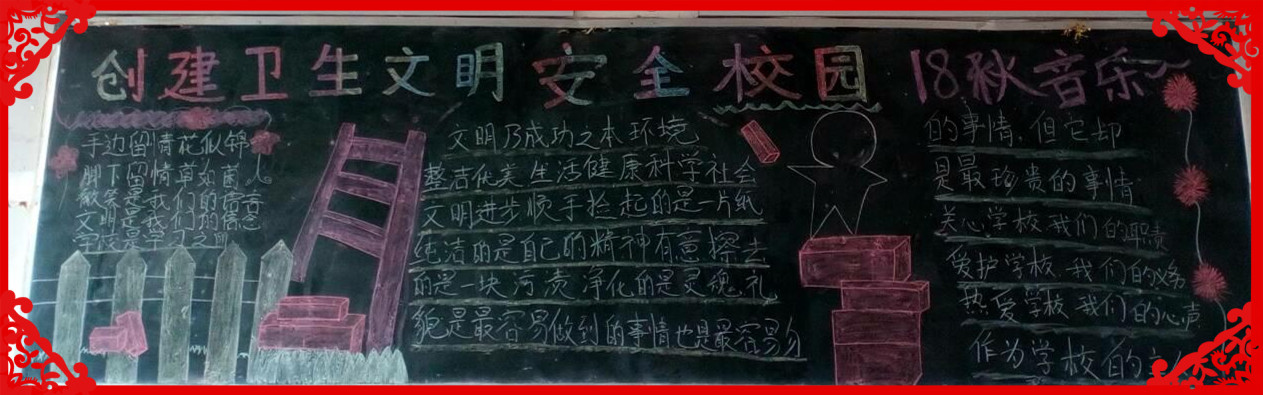 创建卫生文明安全校园 18秋音乐
手边留情花似锦
脚下留情草如茵
微笑是我们的语言
文明是我们的信念
文明乃成功之本环境
整洁优美生活健康科学社会
文明进步顺手捡起的是一片纸
纯洁的是自己的精神有意擦去
的是一块污渍净化的是灵魂礼
貌是最容易做到的事情也是最容易
的事情,但它却
是最珍贵的事情
关心学校我们的职责
爱护学校我们的义务
热爱学校我们的心声
作为学校的